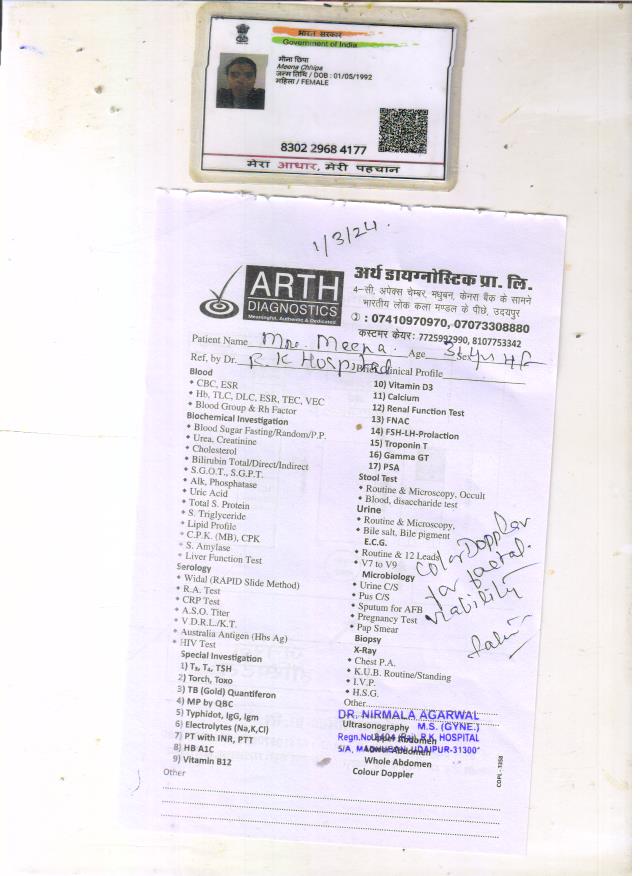 भारत सरकार
Government of India
मीना छिपा
Meena Chhipa
जन्म तिथि / DOB : 01/05/1992
महिला / FEMALE
8302 2968 4177
मेरा आधार, मेरी पहचान
1/3/24.
ARTH
DIAGNOSTICS
Meaningful, Authentic & Dedicated
अर्थ डायग्नोस्टिक प्रा. लि.
4-सी, अपेक्स चेम्बर, मधुबन, केनरा बैंक के सामने
भारतीय लोक कला मण्डल के पीछे, उदयपुर
: 07410970970, 07073308880
कस्टमर केयर: 7725992990, 8107753342
Patient Name Mrs. Meena. Age Sex
Ref, by Dr. R.K Hospital Biochemical Profile
Blood
CBC, ESR
Hb, TLC, DLC, ESR, TEC, VEC
Blood Group & Rh Factor
Biochemical Investigation
Blood Sugar Fasting/Random/P.P.
Urea, Creatinine
Cholesterol
Bilirubin Total/Direct/Indirect
S.G.O.T., S.G.P.T.
Alk, Phosphatase
Uric Acid
Total S. Protein
S. Triglyceride
Lipid Profile
C.P.K. (MB), CPK
S. Amylase
Liver Function Test
Serology
Widal (RAPID Slide Method)
R.A. Test
CRP Test
A.S.O. Titer
V.D.R.L./K.T.
Australia Antigen (Hbs Ag)
HIV Test
Special Investigation
1) T₃, T₄, TSH
2) Torch, Toxo
3) TB (Gold) Quantiferon
4) MP by QBC
5) Typhidot, IgG, Igm
6) Electrolytes (Na,K,Cl)
7) PT with INR, PTT
8) HB A1C
9) Vitamin B12
Other
10) Vitamin D3
11) Calcium
12) Renal Function Test
13) FNAC
14) FSH-LH-Prolaction
15) Troponin T
16) Gamma GT
17) PSA
Stool Test
Routine & Microscopy, Occult
Blood, disaccharide test
Urine
Routine & Microscopy,
Bile salt, Bile pigment
E.C.G.
Routine & 12 Leads
V7 to V9
Microbiology
Urine C/S
Pus C/S
Sputum for AFB
Pregnancy Test
Pap Smear
Biopsy
X-Ray
Chest P.A.
K.U.B. Routine/Standing
I.V.P.
H.S.G.
Other
Color Doppler
for foetal
viability
DR. NIRMALA AGARWAL
Ultrasonography M.S. (GYNE.)
Regn.No. R.K. HOSPITAL
Upper Abdomen
5/A, MADHUBAN, UDAIPUR-31300
Lower Abdomen
Whole Abdomen
Colour Doppler
COPL -3258